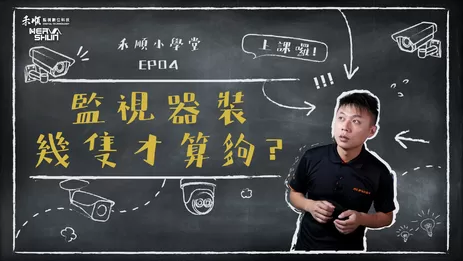 禾順
監視數位科技
HER SHUN
禾順小學堂
EP04
上課囉!
!!!
監視器裝
幾隻才算夠?